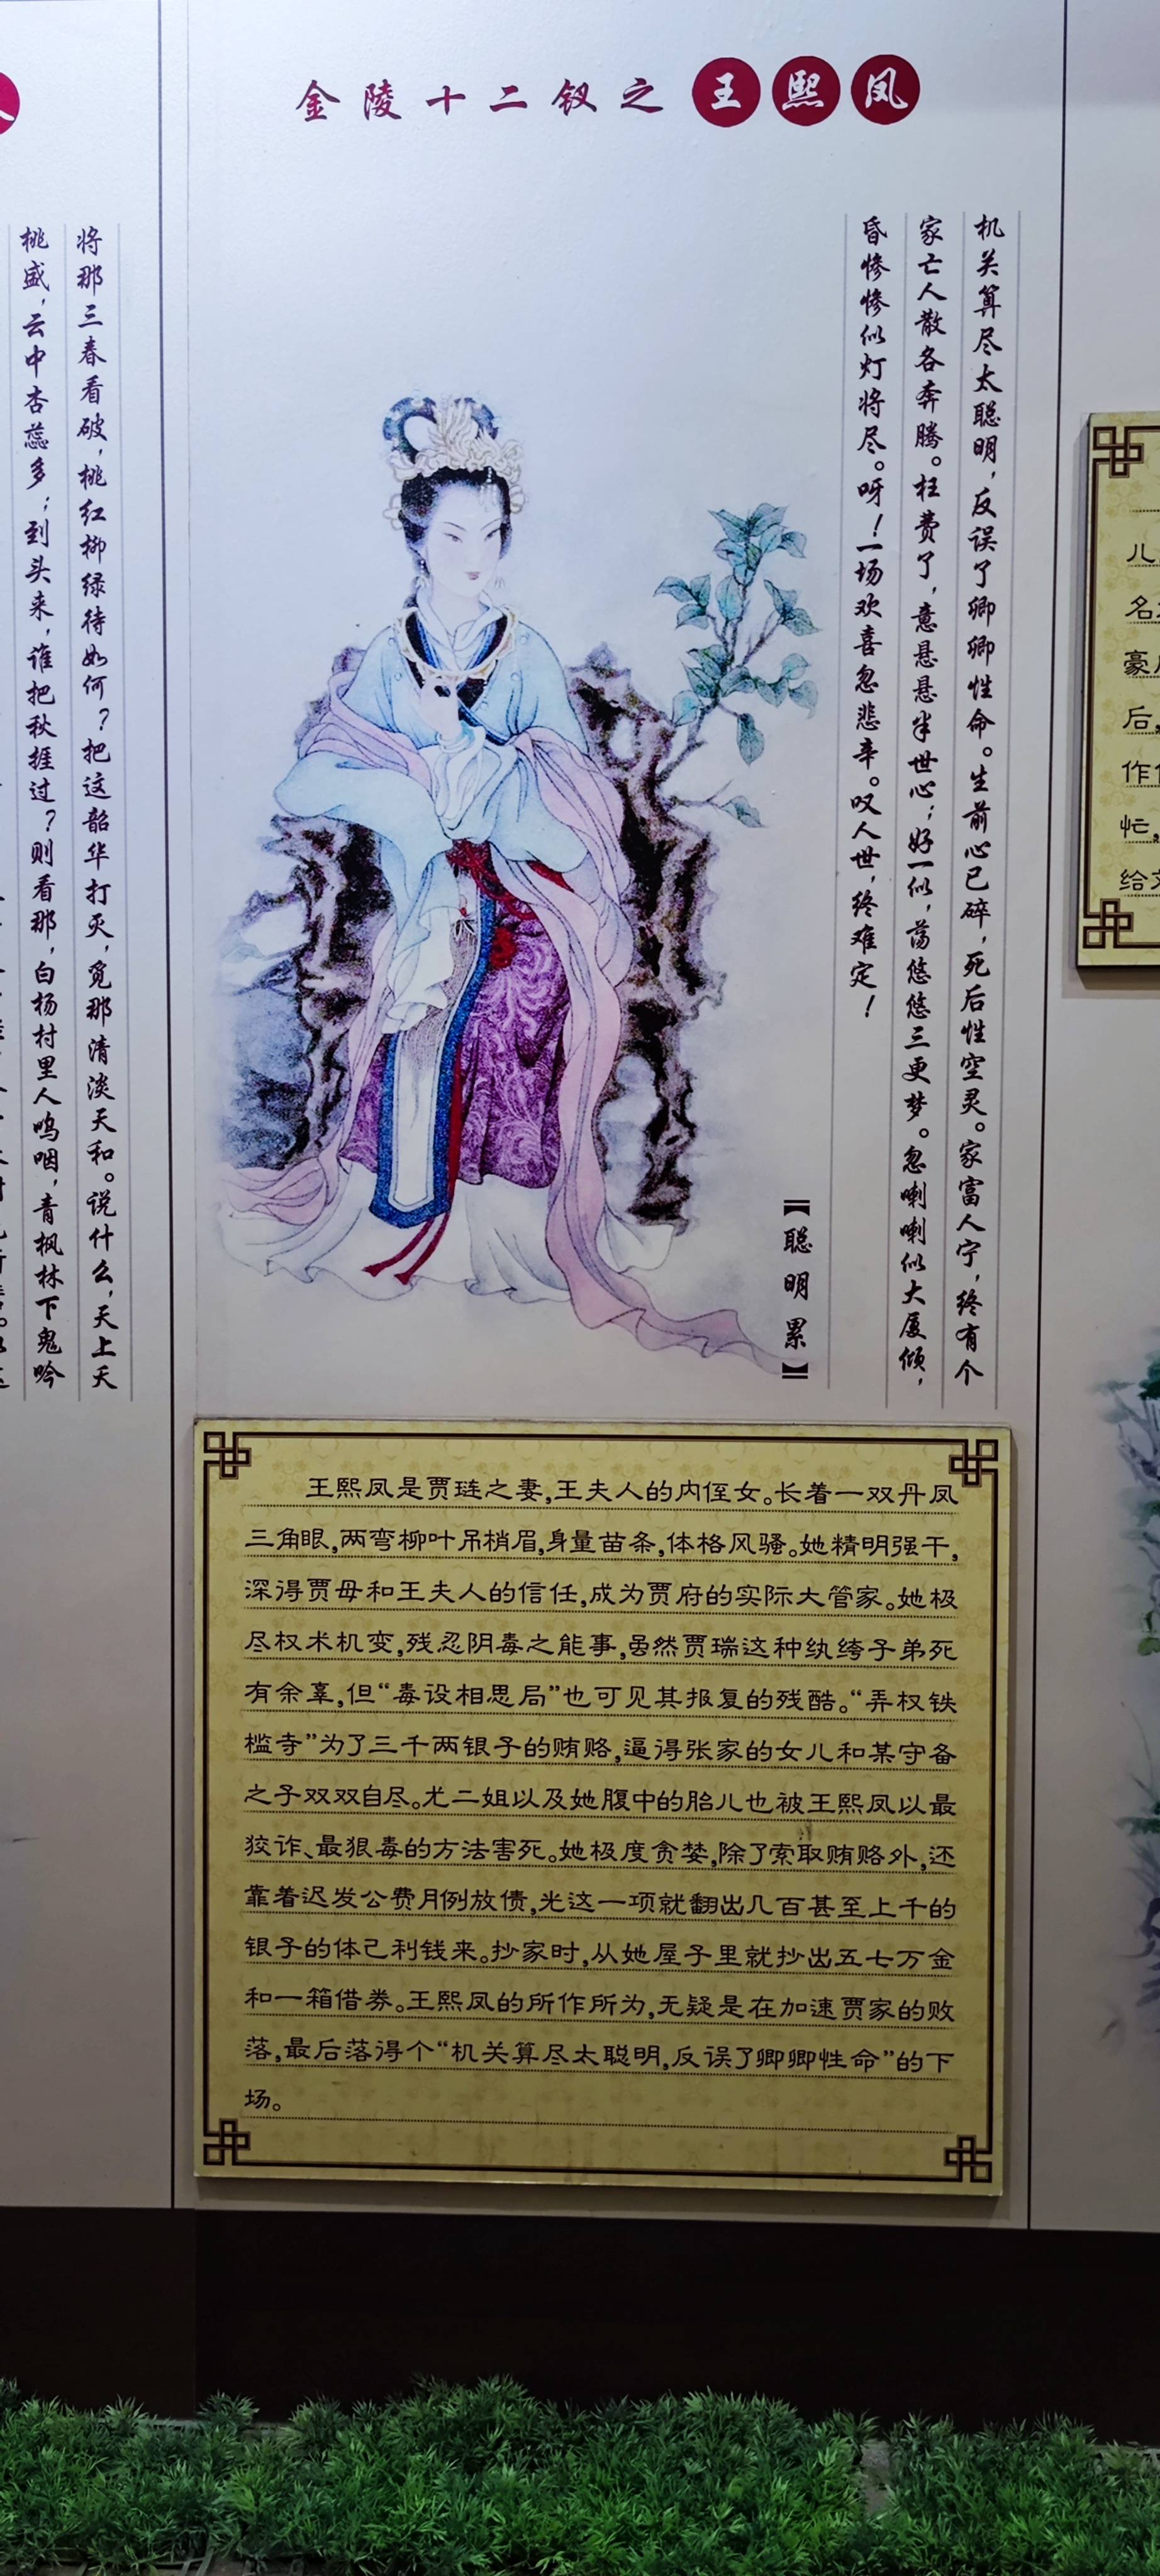 金陵十二钗之王熙凤
机关算尽太聪明，反误了卿卿性命。生前心已碎，死后性空灵。家富人宁，终有个
家亡人散各奔腾。枉费了，意悬悬半世心；好一似，荡悠悠三更梦。忽喇喇似大厦倾，
昏惨惨似灯将尽。呀！一场欢喜忽悲辛。叹人世，终难定！
【聪明累】
王熙凤是贾琏之妻，王夫人的内侄女。长着一双丹凤
三角眼，两弯柳叶吊梢眉，身量苗条，体格风骚。她精明强干，
深得贾母和王夫人的信任，成为贾府的实际大管家。她极
尽权术机变，残忍阴毒之能事，虽然贾瑞这种纨绔子弟死
有余辜，但“毒设相思局”也可见其报复的残酷。“弄权铁
槛寺”为了三千两银子的贿赂，逼得张家的女儿和某守备
之子双双自尽。尤二姐以及她腹中的胎儿也被王熙凤以最
狡诈、最狠毒的方法害死。她极度贪婪，除了索取贿赂外，还
靠着迟发公费月例放债，光这一项就翻出几百甚至上千的
银子的体己利钱来。抄家时，从她屋子里就抄出五七万金
和一箱借券。王熙凤的所作所为，无疑是在加速贾家的败
落，最后落得个“机关算尽太聪明，反误了卿卿性命”的下
场。
将那三春看破，桃红柳绿待如何？把这韶华打灭，觅那清淡天和。说什么，天上夭
桃盛，云中杏蕊多；到头来，谁把秋捱过？则看那，白杨村里人呜咽，青枫林下鬼吟
儿
名
豪
后，
作
忙，
给